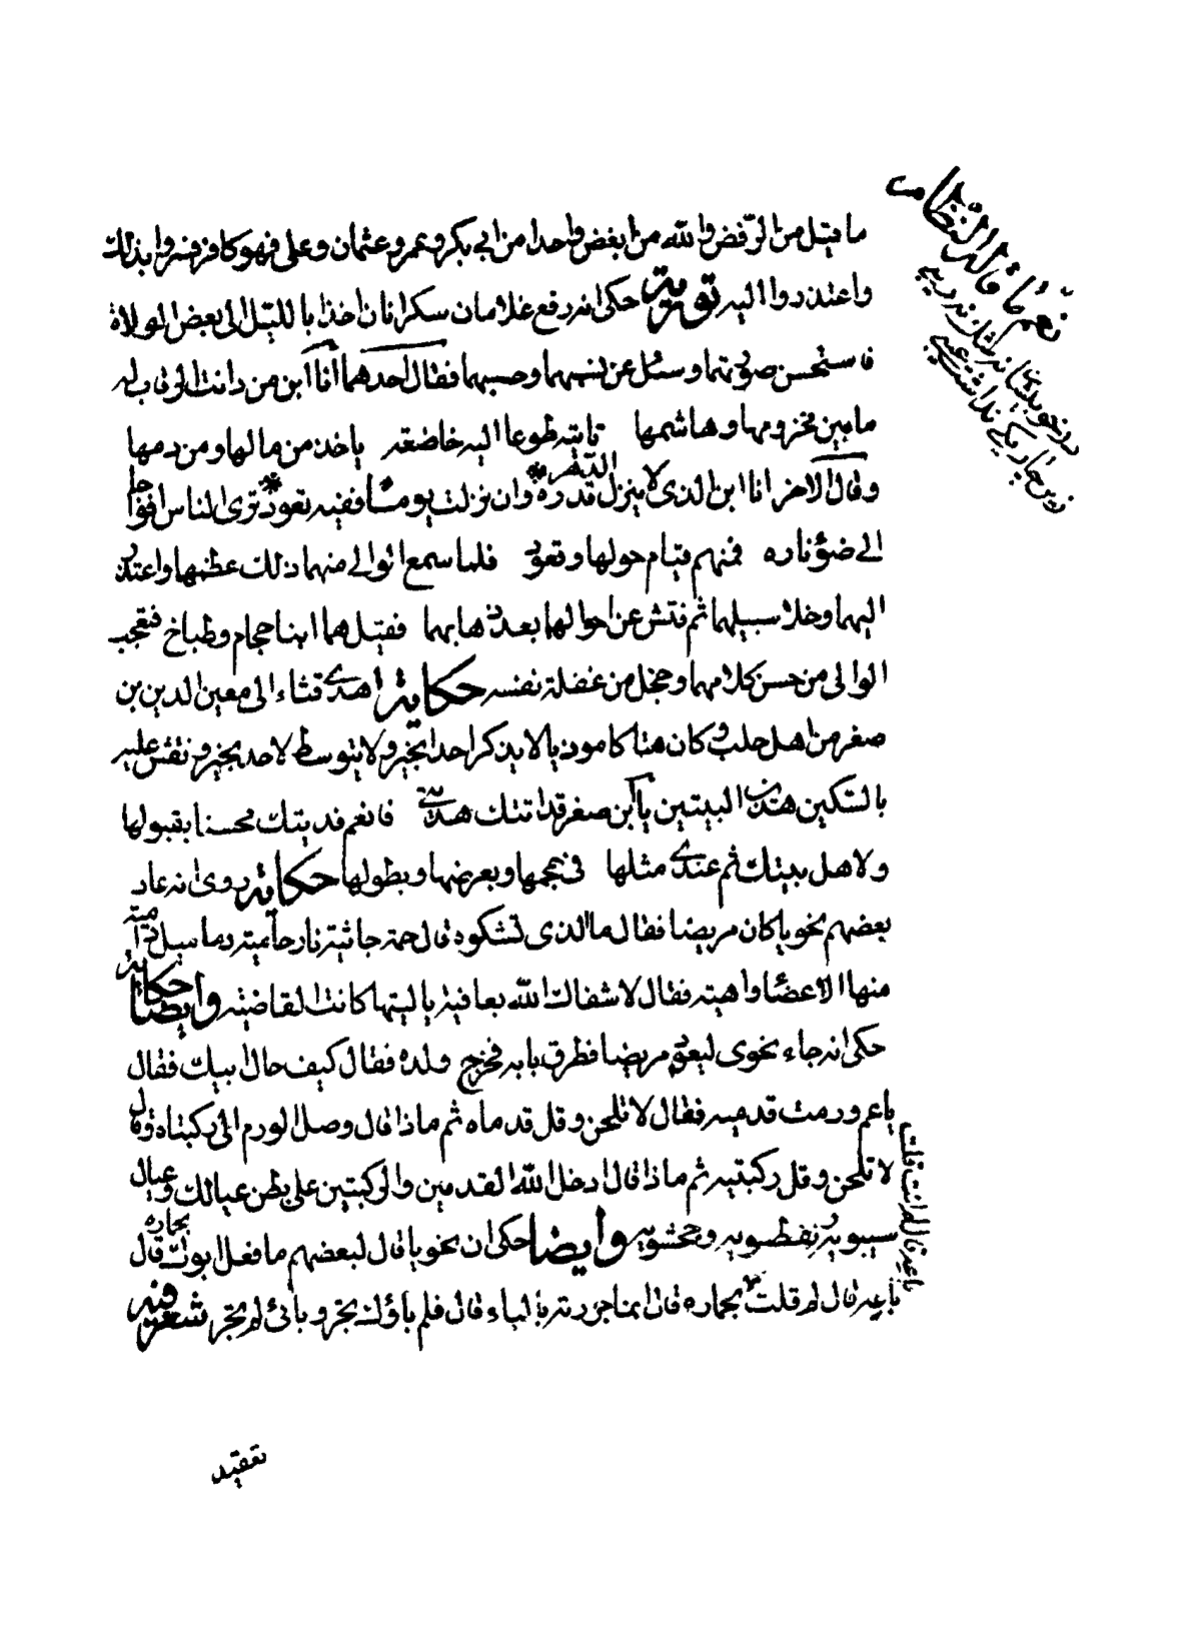 ما قيل من الرفض والله من ابغض واحدا من ابي بكر وعمر وعثمان وعلى فهو كافر ففروا بذلك
واعتذروا اليه تورية حكى انه رفع غلامان سكرانان اخذا بالليل الى بعض الولاة
فاستحسن صورتهما وسئل عن نسبهما وحسبهما فقال احدهما انا ابن من دانت الرقاب له
ما بين مخزومها وهاشمها تاتيه طوعا اليه خاضعة ياخذ من مالها ومن دمها
وقال الاخر انا ابن الذى لا ينزل الدهر قدره وان نزلت يوما ففيه تعود ترى الناس افواجا
الى ضوء ناره فمنهم قيام حولها وقعود فلما سمع الوالى منهما ذلك عظمها واعتذر
اليهما وخلا سبيلهما ثم فتش عن احوالهما بعد ذهابهما فقيل هما ابنا حجام وطباخ فتعجب
الوالى من حسن كلامهما وخجل من غفلة نفسه حكاية اهدى قثاء الى معين الدين بن
صغر من اهل حلب وكان هتاكا موذيا لا يذكر احدا بخير ولا يتوسط لاحد بخير ونقش عليه
بالسكين هذين البيتين يا ابن صغر قد اتتك هديتى فانعم فديتك محسنا بقبولها
ولاهل بيتك ثم عندى مثلها فى حجمها وبعرضها وبطولها حكاية روى انه عاد
بعضهم نحويا كان مريضا فقال ما الذى تشكوه قال حمة جاثية نارها حامية دماسيل دامية
منها الاعضا واهية فقال لا شفاك الله بعافية يا ليتها كانت القاضية وايضا حكاية
حكى انه جاء نحوى ليعود مريضا فطرق بابه فخرج ولده فقال كيف حال ابيك فقال
يا عم ورمت قدميه فقال لا تلحن وقل قدماه ثم ماذا قال وصل الورم الى ركبتاه قال
لا تلحن وقل ركبتيه ثم ماذا قال ادخل الله القدمين والركبتين على بطن عيالك وعيال
سيبويه ونفطويه وجحشويه وايضا حكى ان نحويا قال لبعضهم ما فعل ابوك بحماره قال
باعه قال لم قلت بحماره قال انما جررته بالباء قال فلم باؤك تجر وبائى لم تجر شعر فيه
باعه قال لم انت قلت
نعم ما قاله النظامى
تعقيد